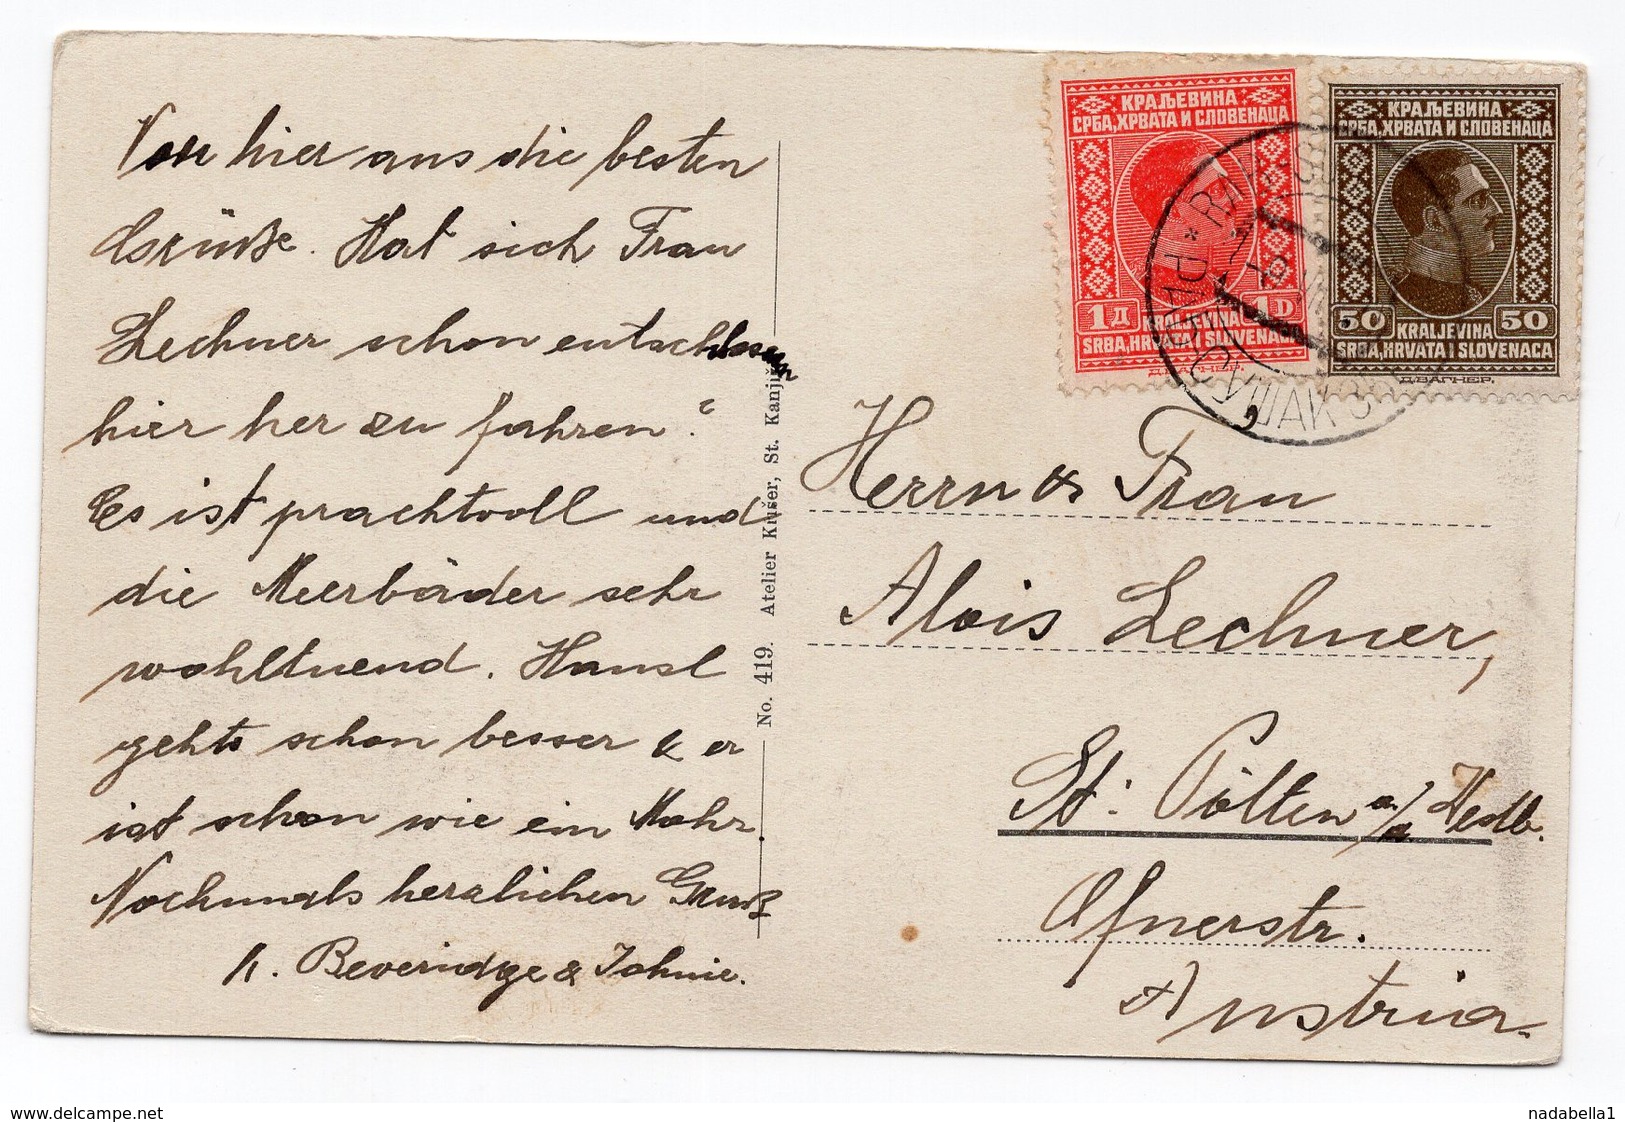 Von hier aus die besten
Grüße. Hat sich Frau
Lechner schon entschlossen
hier her zu fahren?
Es ist prachtvoll und
die Meerbäder sehr
wohltuend. Hansl
gehts schon besser & er
ist schon wie ein Mohr.
Nochmals herzlichen Gruß
Beveridge & Johnie.
No. 419. Atelier Kušer, St. Kanjiž
КРАЉЕВИНА
СРБА, ХРВАТА И СЛОВЕНАЦА
1Д 1D
KRALJEVINA
SRBA, HRVATA I SLOVENACA
Д.ВАГНЕР.
КРАЉЕВИНА
СРБА, ХРВАТА И СЛОВЕНАЦА
50 50
KRALJEVINA
SRBA, HRVATA I SLOVENACA
Д.ВАГНЕР.
СУШАК 3
Herrn & Frau
Alois Lechner,
St. Pölten a/d Westb.
Ofnerstr.
Austria.
delcampe.net
nadabella1